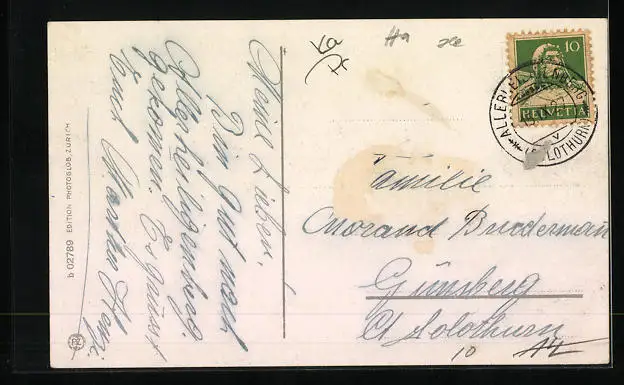 Meine Lieben,
Bin gut nach
Allerheiligenberg
gekommen. Es grüsst
Martha
Familie
Morand Buderman
Günsberg
Ct Solothurn
b 02789 EDITION PHOTOGLOB, ZÜRICH
PZ
Ha
10
HELVETIA
ALLERHEILIGENBERG
(SOLOTHURN)
10